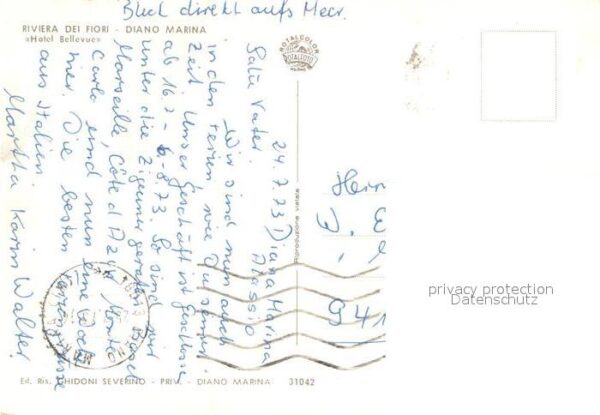 Blick direkt aufs Meer.
RIVIERA DEI FIORI - DIANO MARINA
«Hotel Bellevue»
ROTALCOLOR
ROTALFOTO
MILANO
24.7.73 Diana Marina
Alassio
Salü Vater.
Wir sind nun auch
in den Ferien wie Du
Zeit. Unser Geschäft ist geschlossen
ab 16.7 - 6.8.73. So sind wir
unter die Zigeuner geraten. Basel
Marseille, Côte d'Azur, Monte
Carlo und nun eine Woche
hier. Die besten Feriengrüsse
aus Italien
Martha Karin Walter.
Riproduzione vietata
Herr
941
privacy protection
Datenschutz
Ed. Ris. GHIDONI SEVERINO - PRIV. - DIANO MARINA 31042